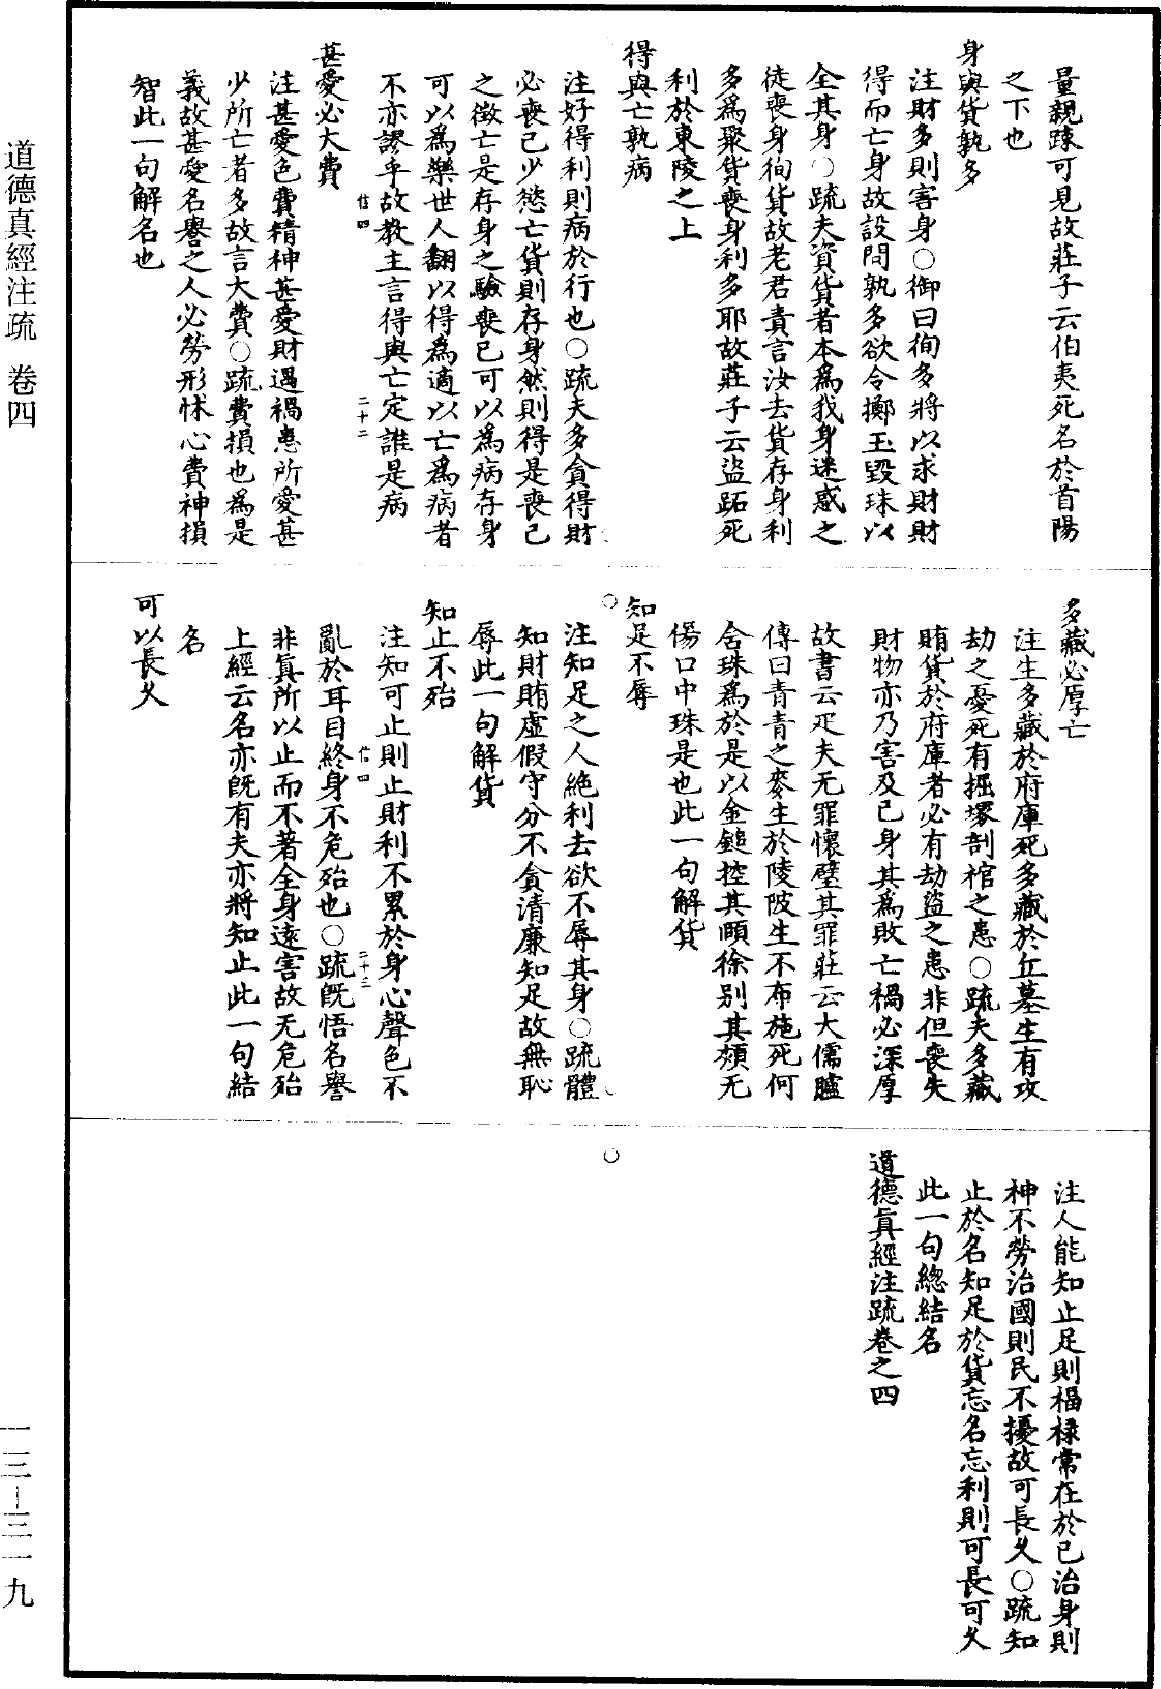 量親踈可見故莊子云伯夷死名於首陽
之下也
身與貨孰多
注財多則害身○御曰徇多將以求財財
得而亡身故設問孰多欲令擲玉毀珠以
全其身○疏夫資貨者本為我身迷惑之
徒喪身徇貨故老君責言汝去貨存身利
多為聚貨喪身利多耶故莊子云盜跖死
利於東陵之上
得與亡孰病
注好得利則病於行也○疏夫多貪得財
必喪己少慾亡貨則存身然則得是喪己
之徵亡是存身之驗喪己可以為病存身
可以為樂世人翻以得為適以亡為病者
不亦謬乎故教主言得與亡定誰是病
信四 二十二
甚愛必大費
注甚愛色費精神甚愛財遇禍患所愛甚
少所亡者多故言大費○疏費損也為是
義故甚愛名譽之人必勞形怵心費神損
智此一句解名也
多藏必厚亡
注生多藏於府庫死多藏於丘墓生有攻
劫之憂死有掘塚剖棺之患○疏夫多藏
賄貨於府庫者必有劫盜之患非但喪失
財物亦乃害及己身其為敗亡禍必深厚
故書云疋夫无罪懷璧其罪莊云大儒臚
傳曰青青之麥生於陵陂生不布施死何
含珠為於是以金鎚控其頤徐別其頰无
傷口中珠是也此一句解貨
知足不辱
注知足之人絶利去欲不辱其身○疏體
知財賄虛假守分不貪清廉知足故無恥
辱此一句解貨
知止不殆
注知可止則止財利不累於身心聲色不
亂於耳目終身不危殆也○疏既悟名譽
信四 二十三
非真所以止而不著全身遠害故无危殆
上經云名亦既有夫亦將知止此一句結
名
可以長久
注人能知止足則福祿常在於己治身則
神不勞治國則民不擾故可長久○疏知
止於名知足於貨忘名忘利則可長可久
此一句總結名
道德真經注疏卷之四
道德真經注疏 卷四
一三-三一九